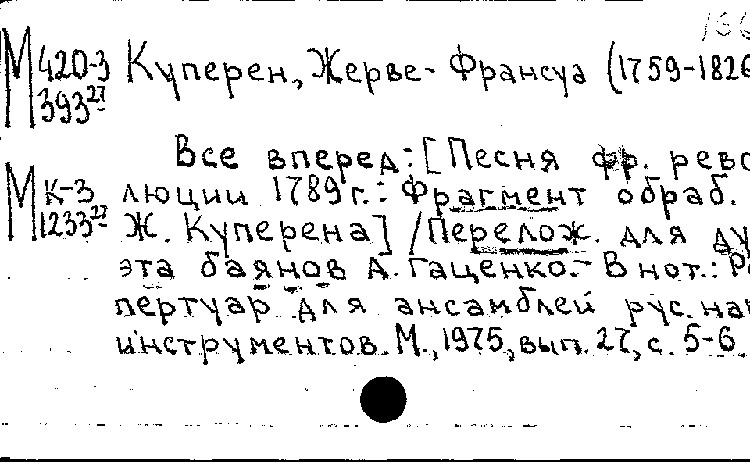 М 420-3 Куперен, Жерве-Франсуа (1759-1826
393 27
Все вперед: [Песня фр. рево
М К-3 люции 1789 г.: Фрагмент обраб.
1233 27 Ж. Куперена] / Перелож. для ду
эта баянов А. Гаценко.- В нот.: Ре
пертуар для ансамблей рус. нар
инструментов. М., 1975, вып. 27, с. 5-6.